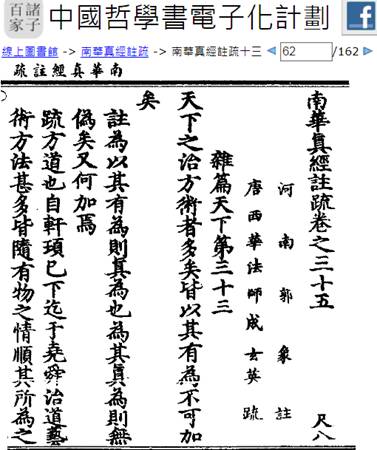 諸子百家
中國哲學書電子化計劃
線上圖書館 -> 南華真經註疏 -> 南華真經註疏十三 62 /162
南華真經註疏
南華真經註疏卷之三十五 尺八
河南郭象註
唐西華法師成玄英疏
雜篇天下第三十三
天下之治方術者多矣皆以其有為不可加
矣
註為以其有為則真為也為其真為則無
偽矣又何加焉
疏方道也自軒頊已下迄于堯舜治道藝
術方法甚多皆隨有物之情順其所為之